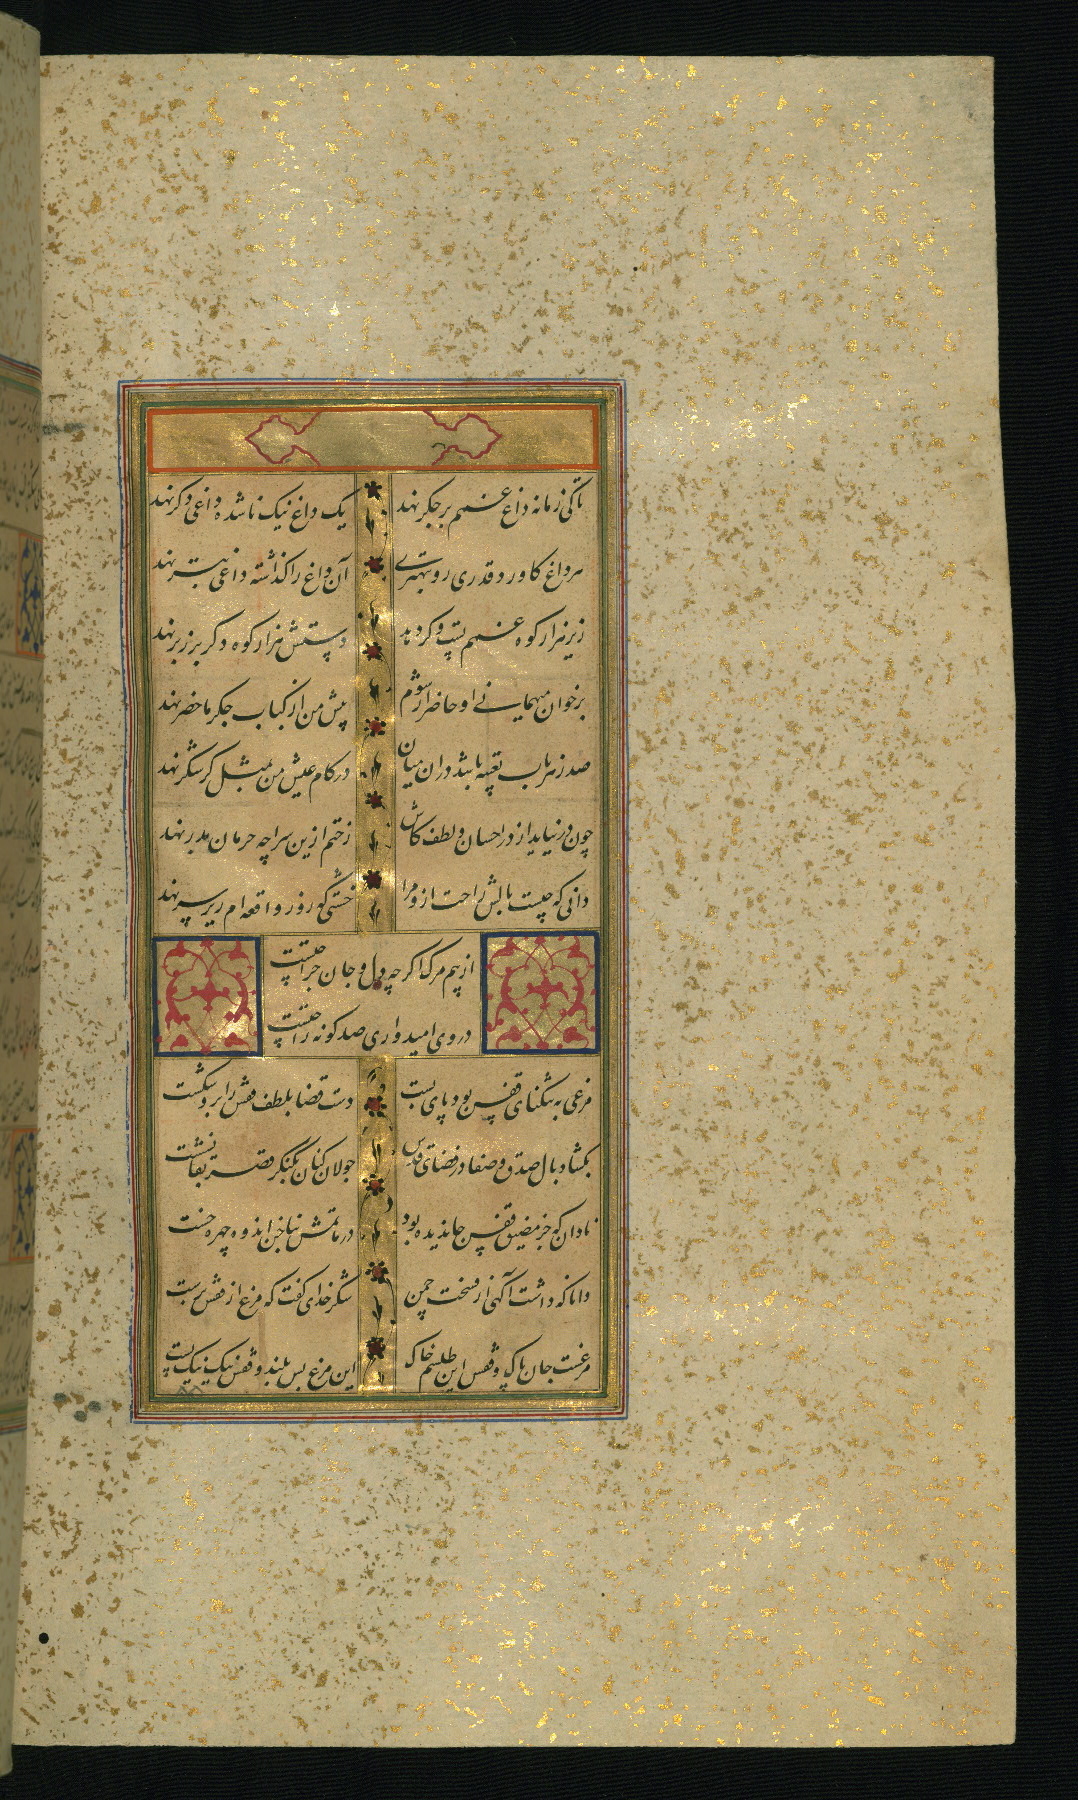 تا کی زمانه داغ غمم بر جگر نهد یک داغ نیک ناشده داغی دگر نهد
هر داغ کاورد قدری رو به بهتری آن داغ را گذاشته داغی بتر نهد
زیر هزار کوه غمم پست و کرده بد دستش هزار کوه دگر بر زبر نهد
بر خوان میهمانی او حاضر ار شوم پیش من از کباب جگر ماحضر نهد
صد زهر ناب تعبیه باشد در آن میان در کام عیش من بمثل گر شکر نهد
چون در نیاید از در احسان و لطف کاش رختم ازین سراچه حرمان بدر نهد
دانی که چیست بالش راحت ازو مرا خشتی که روز واقعه ام زیر سر نهد
از بیم مرگ اگر چه دل و جان جراحتست
در وی امیدواری صد گونه راحتست
مرغی به تنگنای قفس بود پای بست دست قضا بلطف قفس را برو شکست
بگشاد بال صدق و صفا در فضای قدس جولان کنان بکنگر قصر بقا نشست
نادان که جز مضیق قفس جا ندیده بود در ماتمش بناخن اندوه چهره خست
دانا که داشت آگهی از فسحت چمن شکر خدای گفت که مرغ از قفس برست
مرغست جان پاک و قفس این طلسم خاک این مرغ بس بلند و قفس نیک نیک پست